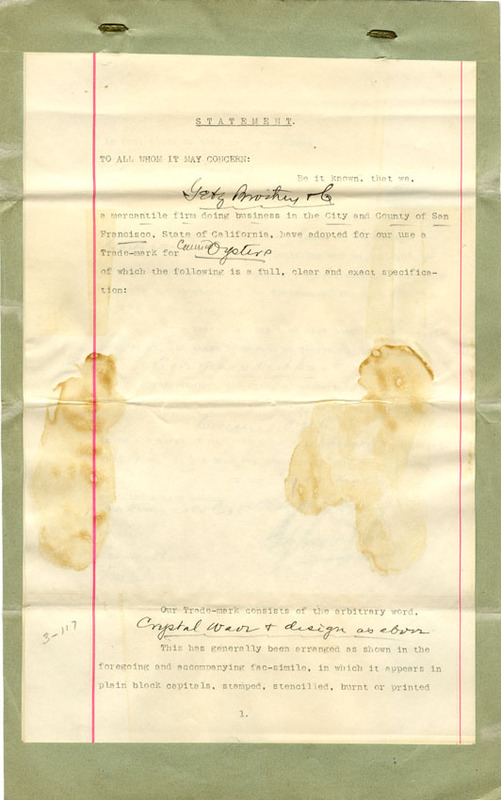 STATEMENT.
TO ALL WHOM IT MAY CONCERN:
Be it known, that we,
Getz Brothers & Co
a mercantile firm doing business in the City and County of San
Francisco, State of California, have adopted for our use a
Trade-mark for Canned Oysters
of which the following is a full, clear and exact specifica-
tion:
Our Trade-mark consists of the arbitrary word,
Crystal Wave & design as above
3-117
This has generally been arranged as shown in the
foregoing and accompanying fac-simile, in which it appears in
plain block capitals, stamped, stencilled, burnt or printed
1.